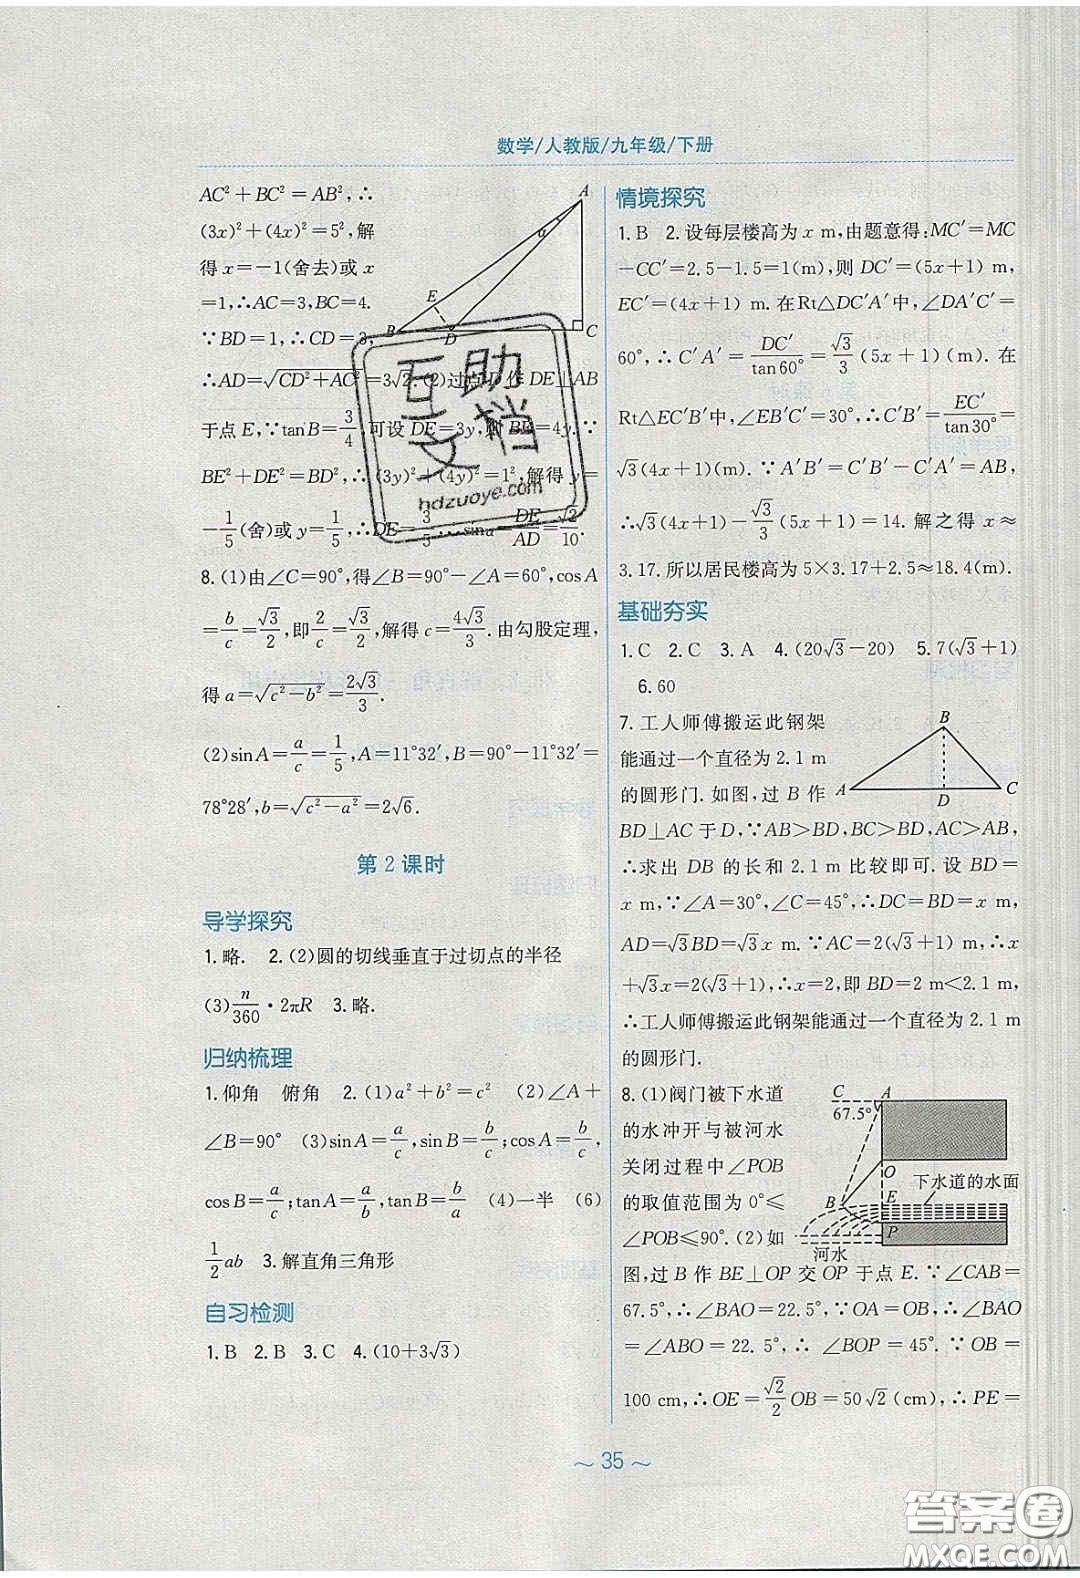 数学/人教版/九年级/下册
AC²+BC²=AB²,∴
(3x)²+(4x)²=5²,解
得x=-1(舍去)或x
=1,∴AC=3,BC=4.
∵BD=1,∴CD=3,
∴AD=√(CD²+AC²)=3√2.(2)过点D作DE⊥AB
于点E,∵tanB=3/4,可设DE=3y,则BE=4y.∵
BE²+DE²=BD²,∴(3y)²+(4y)²=1²,解得y=
-1/5(舍)或y=1/5,∴DE=3/5∴sinα=DE/AD=√2/10.
A
α
E
B
D
C
8.(1)由∠C=90°,得∠B=90°-∠A=60°,cosA
=b/c=√3/2,即2/c=√3/2,解得c=4√3/3.由勾股定理,
得a=√(c²-b²)=2√3/3.
(2)sinA=a/c=1/5,A=11°32′,B=90°-11°32′=
78°28′,b=√(c²-a²)=2√6.
第2课时
导学探究
1.略. 2.(2)圆的切线垂直于过切点的半径
(3)n/360·2πR 3.略.
归纳梳理
1.仰角 俯角 2.(1)a²+b²=c² (2)∠A+
∠B=90° (3)sinA=a/c,sinB=b/c;cosA=b/c,
cosB=a/c;tanA=a/b,tanB=b/a (4)一半 (6)
1/2ab 3.解直角三角形
自习检测
1.B 2.B 3.C 4.(10+3√3)
情境探究
1.B 2.设每层楼高为x m,由题意得:MC′=MC
-CC′=2.5-1.5=1(m),则DC′=(5x+1) m,
EC′=(4x+1) m.在Rt△DC′A′中,∠DA′C′=
60°,∴C′A′=DC′/tan60°=√3/3(5x+1)(m).在
Rt△EC′B′中,∠EB′C′=30°,∴C′B′=EC′/tan30°=
√3(4x+1)(m).∵A′B′=C′B′-C′A′=AB,
∴√3(4x+1)-√3/3(5x+1)=14.解之得x≈
3.17.所以居民楼高为5×3.17+2.5≈18.4(m).
基础夯实
1.C 2.C 3.A 4.(20√3-20) 5.7(√3+1)
6.60
7.工人师傅搬运此钢架
能通过一个直径为2.1 m
的圆形门.如图,过B作
B
A
D
C
BD⊥AC于D,∵AB>BD,BC>BD,AC>AB,
∴求出DB的长和2.1 m比较即可.设BD=
x m,∵∠A=30°,∠C=45°,∴DC=BD=x m,
AD=√3BD=√3x m.∵AC=2(√3+1) m,∴x
+√3x=2(√3+1),∴x=2,即BD=2 m<2.1 m,
∴工人师傅搬运此钢架能通过一个直径为2.1 m
的圆形门.
8.(1)阀门被下水道
的水冲开与被河水
关闭过程中∠POB
的取值范围为0°≤
∠POB≤90°.(2)如
C
A
67.5°
O
下水道的水面
B
E
P
河水
图,过B作BE⊥OP交OP于点E.∵∠CAB=
67.5°,∴∠BAO=22.5°,∵OA=OB,∴∠BAO
=∠ABO=22.5°,∴∠BOP=45°.∵OB=
100 cm,∴OE=√2/2OB=50√2(cm),∴PE=
~35~
互助
文档
hdzuoye.com
答案圈
MXQE.COM